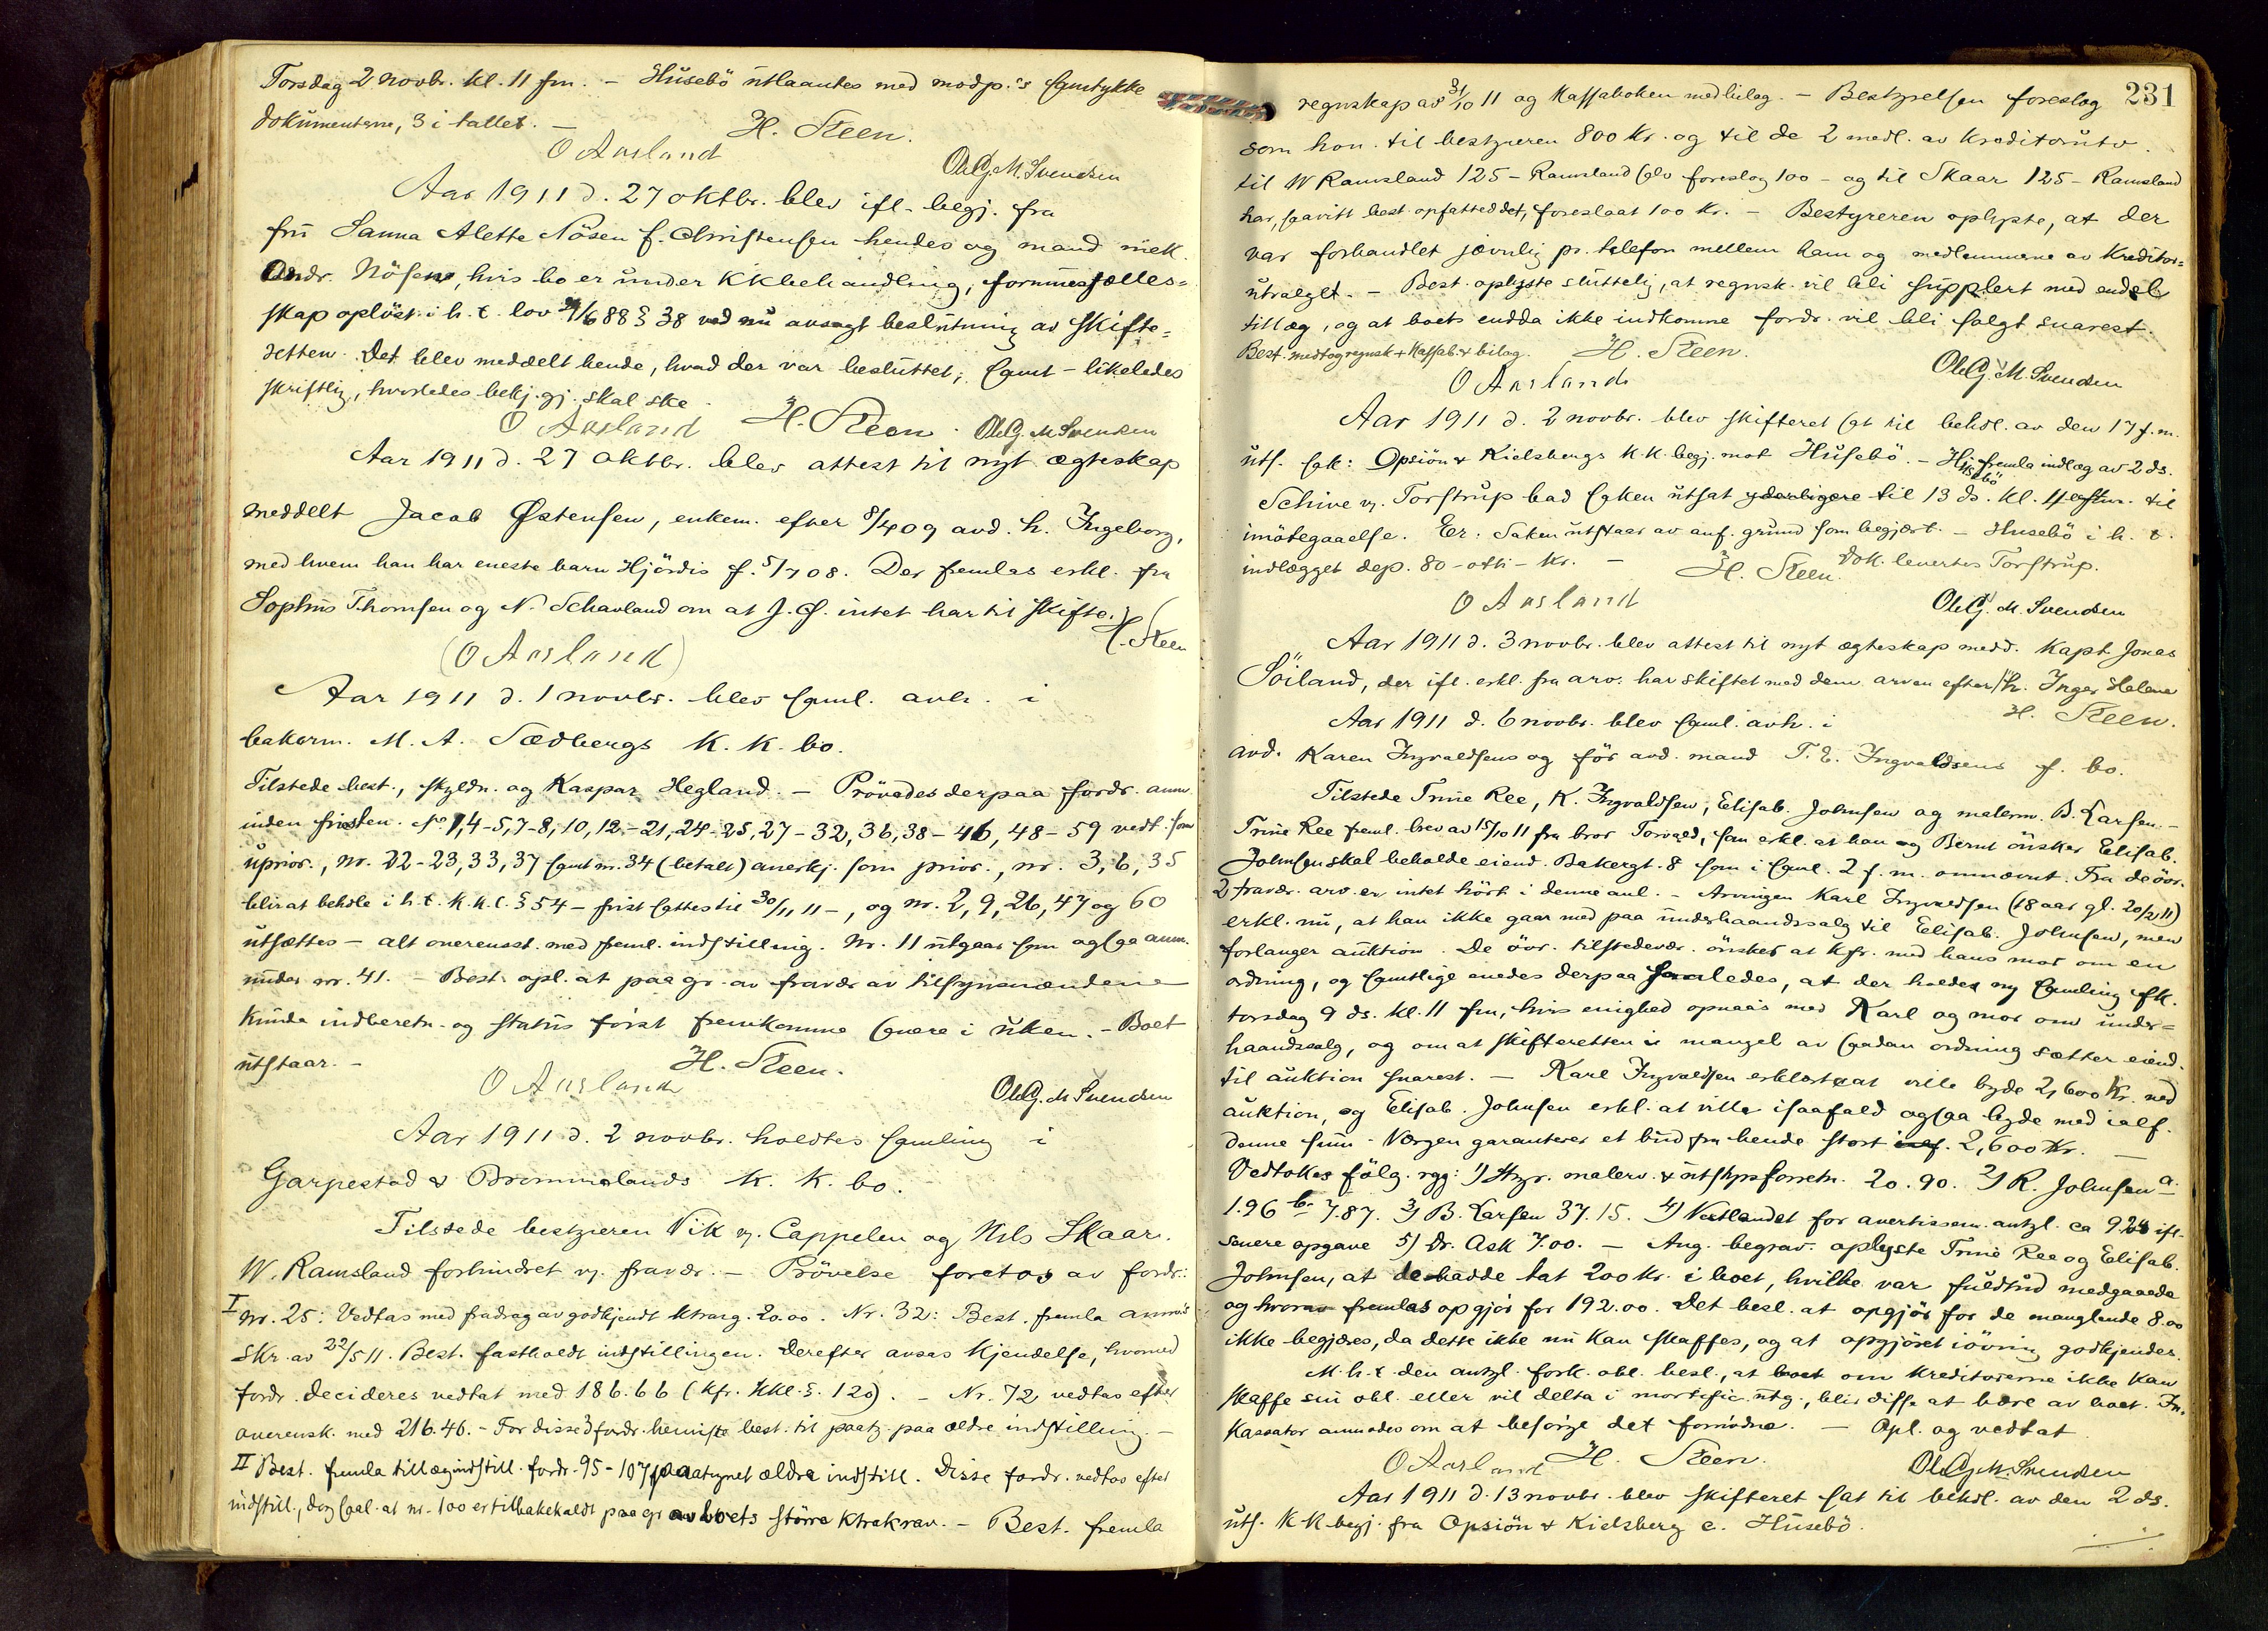 Torsdag 2 novbr. kl. 11 fm. – Husebö utlaantes med modp.'s samtykke
dokumenterne, 3 i tallet. –
H. Steen.
O Aasland
Ole G. M. Svendsen
Aar 1911 d. 27 oktbr. blev ifl. begj. fra
fru Sanna Alette Nösen f. Christensen hendes og mand mek.
Andr. Nösens, hvis bo er under KKbehandling, formuesfælles=
skap oplöst i h. t. lov 29/6 88 § 38 ved nu avsagt beslutning av skifte=
retten. Det blev meddelt hende, hvad der var besluttet, samt – likeledes
skriftlig, hvorledes bekj.gj. skal ske.
O Aasland H. Steen. Ole G. M Svendsen
Aar 1911 d. 27 oktbr. blev attest til nyt ægteskap
meddelt Jacob Østensen, enkem. efter 8/4 09 avd. h. Ingeborg,
med hvem han har eneste barn Hjördis f. 5/7 08. Der fremlas erkl. fra
Sophus Thomsen og N. Schavland om at J. Ø. intet har til skifte.
H. Steen
(O Aasland)
Aar 1911 d. 1 novbr. blev saml. avh. i
bakerm. M. A. Sædbergs K. K. bo.
Tilstede best., skyldn. og Kaspar Hegland. – Prövedes derpaa fordr. anm.
inden fristen. No 1, 4-5, 7-8, 10, 12-21, 24-25, 27-32, 36, 38-46, 48-59 vedt. som
uprior., nr. 22-23, 33, 37 samt nr. 34 (betalt) anerkj. som prior., nr. 3, 6, 35
blir at behdle i h. t. K.K.l. § 54 – frist sattes til 30/11 11 –, og nr. 2, 9, 26, 47 og 60
utsættes – alt overensst. med freml. indstilling. Nr. 11 utgaar som ogsaa anm.
under nr. 41. – Best. opl. at paa gr. av fravær av tilsynsmændene
kunde indberetn. og status först fremkomme senere i uken. – Boet
utstaar. –
H. Steen.
O Aasland
Ole G. M Svendsen
Aar 1911 d. 2 novbr. holdtes samling i
Garpestad & Brommelands K. K. bo.
Tilstede bestyreren Vik v. Cappelen og Nils Skaar.
W. Ramsland forhindret v. fravær. – Prövelse foretas av fordr.:
I nr. 25: Vedtas med fradrag av godkjendt ktrarg. 20.00. Nr. 32: Best. fremla
skr. av 22/5 11. Best. fastholdt indstillingen. Derefter avsas kjendelse, hvorved
fordr. decideres vedtat med 186.66 (kfr. kkl. §. 120). – Nr. 72 vedtas efter
overensk. med 216.46. – For disse 3 fordr. henviste best. til paateg. paa ældre indstilling. –
II Best. fremla tillægsindstill. fordr. 95-107 paategnet ældre indstill. Disse fordr. vedtas efter
indstill., dog saal. at nr. 100 er tilbakekaldt paa gr. av boets större ktrakrav. – Best. fremla
231
regnskap av 31/10 11 og kassaboken med bilag. – Bestyrelsen foreslog
som hon. til bestyreren 800 kr. og til de 2 medl. av kreditorutv.
til W Ramsland 125 – Ramsland selv foreslog 100 – og til Skaar 125 – Ramsland
har, saavitt best. opfattet det, foreslaat 100 kr. – Bestyreren oplyste, at der
var forhandlet jævnlig pr. telefon mellem ham og medlemmerne av kreditor=
utvalget. – Best. oplyste sluttelig, at regnsk. vil bli supplert med endel
tillæg, og at boets endda ikke indkomne fordr. vil bli solgt snarest.
Best. medtog regnsk + Kassab. & bilag. H. Steen.
O Aasland
Ole G. M. Svendsen
Aar 1911 d. 2 novbr. blev skifteret sat til behdl. av den 17 f. m.
uts. sak: Opsiön & Kielsbergs K.K. begj. mot Husebö. – Husebö fremla indlæg av 2 ds.
Schive v. Torstrup bad saken utsat yderligere til 13 ds. kl. 4 eftm. til
imötegaaelse. Er: Saken utstaar av anf. grund som begjært. – Husebö i h. t.
indlægget dep. 80 – otti – kr. – Dok. levertes Torstrup.
H. Steen.
O Aasland
Ole G. M. Svendsen
Aar 1911 d. 3 novbr. blev attest til nyt ægteskap medd. Kapt. Jonas
Söiland, der ifl. erkl. fra arv. har skiftet med dem arven efter h. Inger Helene
H. Steen.
Aar 1911 d. 6 novbr. blev saml. avh. i
avd. Karen Ingvaldsens og för avd. mand T. E. Ingvaldsens f. bo.
Tilstede Trine Ree, K. Ingvaldsen, Elisab. Johnsen og malerm. B. Larsen. –
Trine Ree freml. brev av 15/10 11 fra bror Torvald, som erkl. at han og Bernt önsker Elisab.
Johnsen skal beholde eiend. Bakergt. 8 som i saml. 2 f. m. omnævnt. Fra de övr.
2 fravær. arv. er intet hört i denne anl. – Arvingen Karl Ingvaldsen (18 aar gl. 20/2 11)
erkl. nu, at han ikke gaar med paa underhaandssalg til Elisab. Johnsen, men
forlanger auktion. De övr. tilstedevær. önsket at kfr. med hans mor om en
ordning, og samtlige enedes derpaa saaledes, at der holdes ny samling sk.
torsdag 9 ds. kl. 11 fm, hvis enighed opnaaes med Karl og mor om under=
haandssalg, og om at skifteretten i mangel av saadan ordning sætter eiend.
til auktion snarest. – Karl Ingvaldsen erklærte at ville byde 2,600 kr. ved
auktion, og Elisab. Johnsen erkl. at ville isaafald ogsaa byde med ialf.
denne sum. Værgen garanterer et bud fra hende stort 2,600 kr. –
Vedtokes fölg. rgg: 1) Magr. malerv. & utskiftsforretn. 20.90. 2) R. Johnsen a.
1.96 b. 7.87. 3) B. Larsen 37.15. 4) Vestlandet for avertissem. antgl. ca 9.28 ifl.
senere opgave 5) Dr. Ask 7.00. – Ang. begrav. oplyste Trine Ree og Elisab.
Johnsen, at de hadde tat 200 kr. i boet, hvilke var fuldtud medgaaede
og hvorav fremlas opgjör for 192.00. Det besl. at opgjör for de manglende 8.00
ikke begjæres, da dette ikke nu kan skaffes, og at opgjöret iövrig godkjendes.
M. h. t. den antgl. fork. obl. besl., at om kreditorerne ikke kan
skaffe sin obl. eller vil delta i mortific. utg., blir disse at bære av boet. In=
kassator anmodes om at besörge det fornödne. – Opl. og vedtat
O Aasland H. Steen.
Ole G. M. Svendsen
Aar 1911 d. 13 novbr. blev skifteret sat til behdl. av den 2 ds.
uts. KK begj. fra Opsiön & Kielsberg c. Husebö.